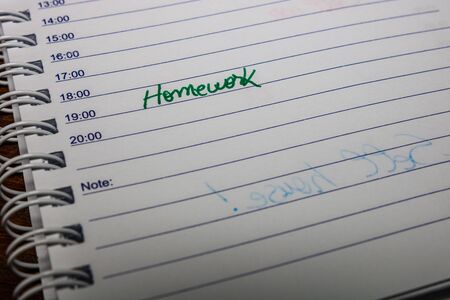 13:00
14:00
15:00
16:00
17:00
18:00
19:00 Homework
20:00
Note:
Sell house!